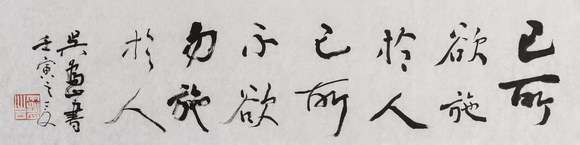 己所
欲施
於人
己所
不欲
勿施
於人
吳為山書
壬寅之夏